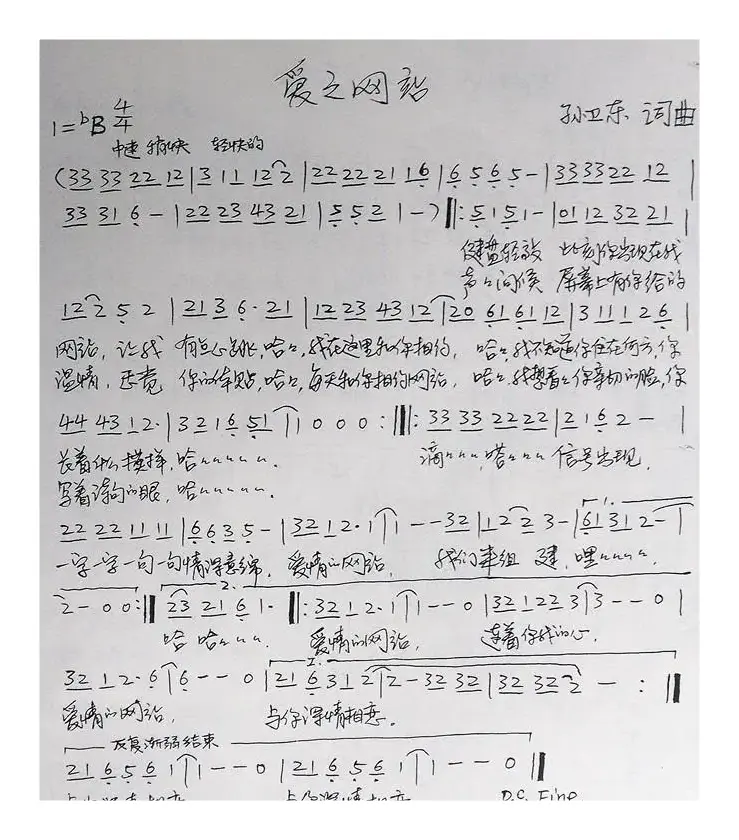 爱之网站
1=ᵇB 4/4
孙卫东 词曲
中速 稍快 轻快的
(33 33 22 12 | 3 11 12 2 | 22 22 21 16 | 6 5 6 5 - | 33 33 22 12 |
33 31 6 - | 22 23 43 21 | 5 5 2 1 - ) ‖: 5 1 5 1 - | 01 12 32 21 |
键盘轻敲 此刻你出现在我
声声问候 屏幕上有你给的
12 2 5 2 | 21 3 6 · 21 | 12 23 43 12 | 20 61 61 12 | 3 11 1 2 6 |
网站, 让我 有点心跳, 哈哈, 我在这里和你相约, 哈哈 我不知道你住在何方, 你
温情, 感觉 你的体贴, 哈哈, 每天和你相约网站, 哈哈 我想看看你亲切的脸, 你
44 43 1 2 · | 3 2 1 6 51 | 1 0 0 0 :‖: 33 33 22 22 | 2 1 6 2 - |
长着什么模样, 哈
滴 , 嗒 信号出现,
写着诗句的眼, 哈
22 22 11 11 | 6 6 3 5 - | 32 1 2 · 1 | 1 - - 32 | 1 2 2 3 - | 61 31 2 - |
一字一字一句一句情深意绵, 爱情的网站, 我们来组 建, 嘿
2 - 0 0 :‖ 23 21 6 1 · ‖: 32 1 2 · 1 | 1 - - 0 | 32 1 22 3 | 3 - - 0 |
哈 哈 爱情的网站, 连着你我的心.
32 1 2 · 6 | 6 - - 0 | 21 6 3 1 2 | 2 - 32 32 | 32 32 2 - :‖
爱情的网站, 与你深情相恋.
反复渐弱结束
21 6 5 6 1 | 1 - - 0 | 21 6 5 6 1 | 1 - - 0 ‖
与你深情相恋 与你深情相恋 D.C. Fine